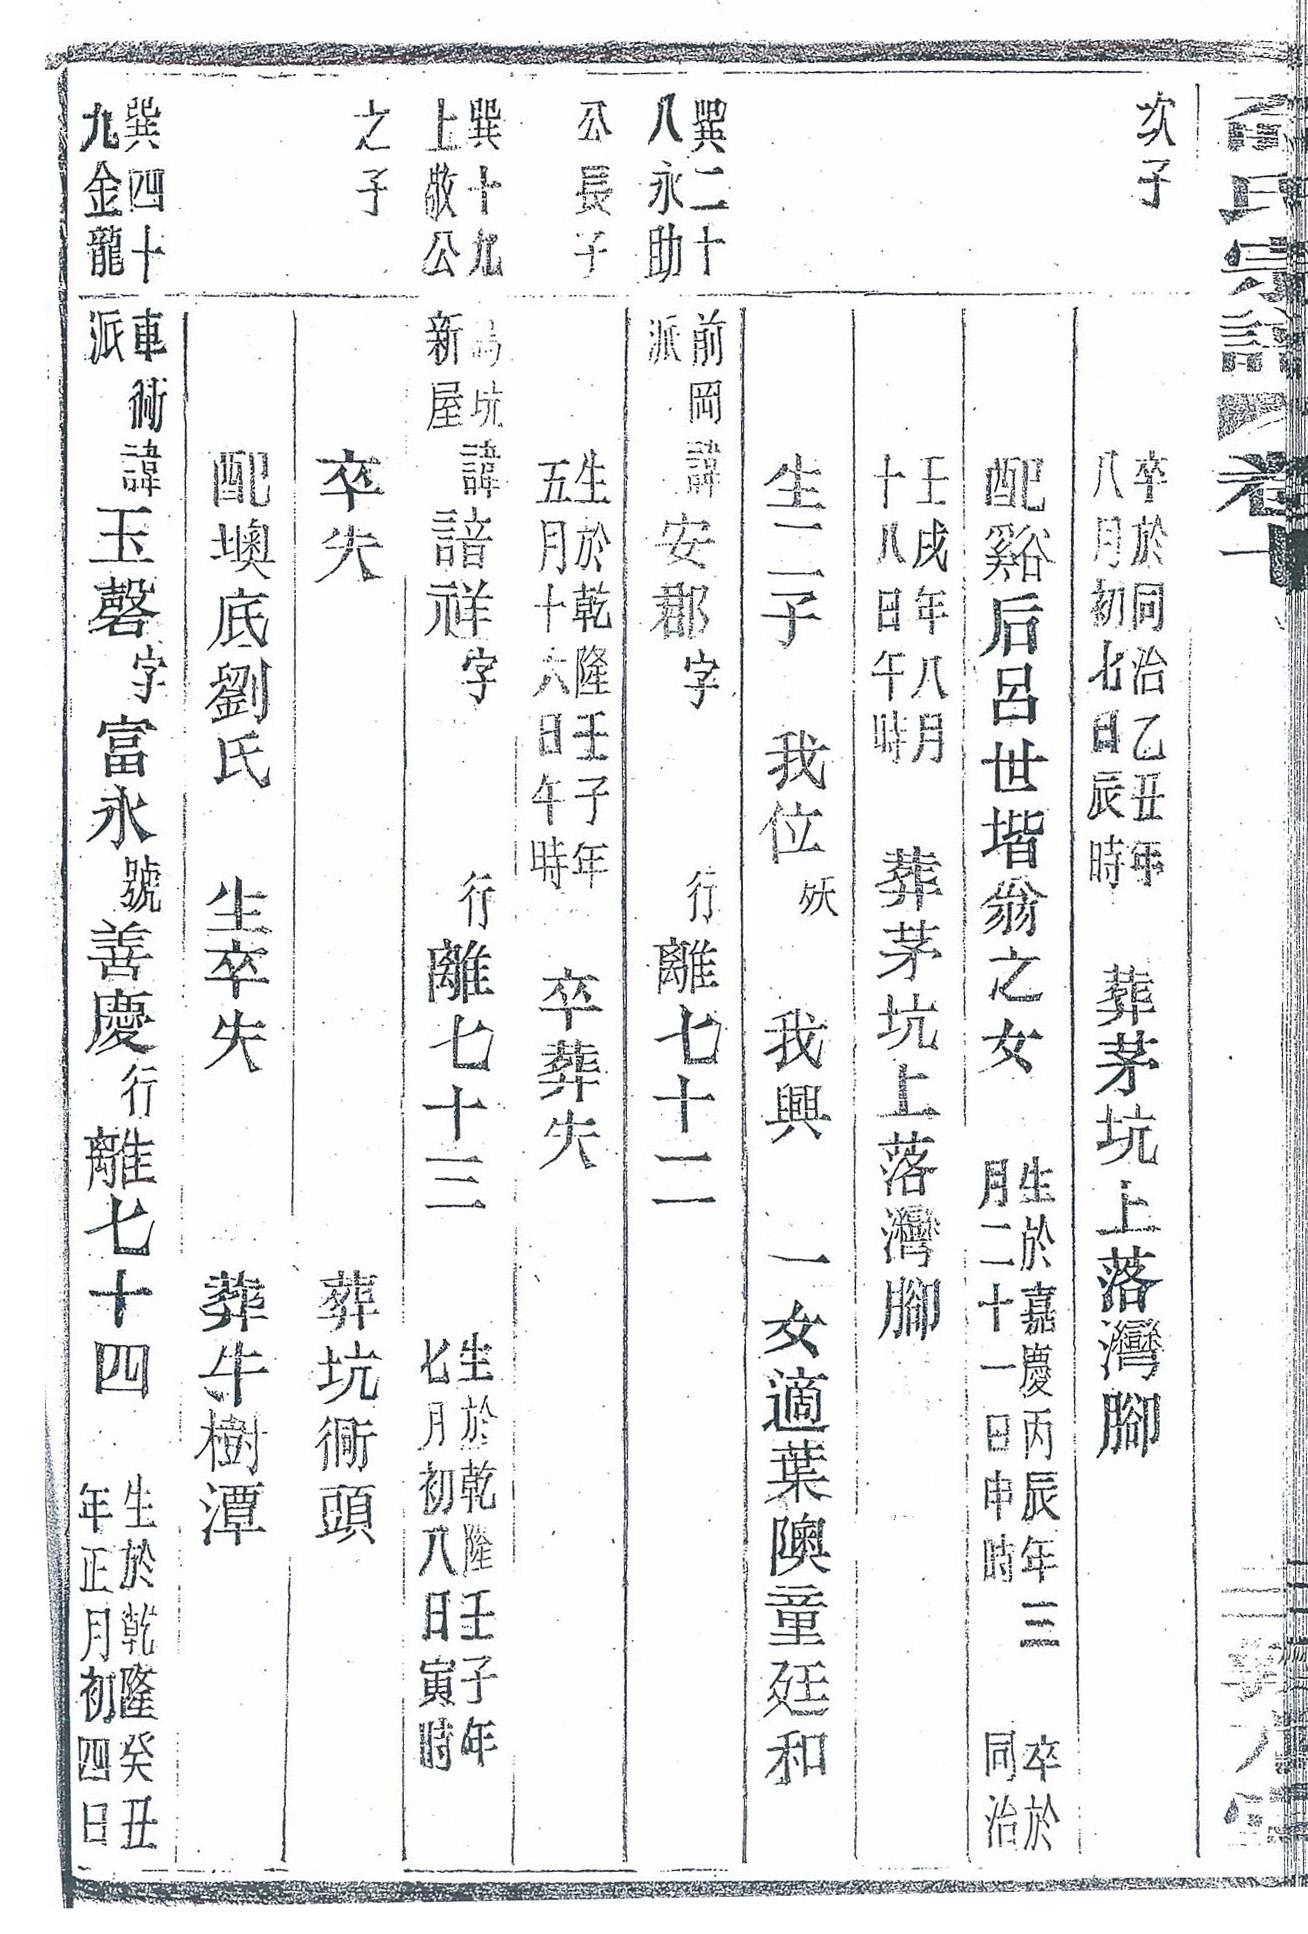 氏宗譜 卷一
次子
卒於同治乙丑年
八月初七日辰時
葬茅坑上落灣腳
配谿后呂世堦翁之女
生於嘉慶丙辰年三
月二十一日申時
卒於
同治
壬戌年八月
十八日午時
葬茅坑上落灣腳
生二子 我位 殀 我興 一女適葉隩童廷和
巽二十
八永助
公長子
前岡
派
諱安郡字 行離七十二
生於乾隆壬子年
五月十六日午時
卒葬失
巽十九
上敬公
之子
坑
新屋
諱諳祥字 行離七十三
生於乾隆壬子年
七月初八日寅時
卒失 葬坑衕頭
配墺底劉氏 生卒失 葬牛樹潭
巽四十
九金龍
車衕
派
諱玉磬字富永號善慶行離七十四
生於乾隆癸丑
年正月初四日